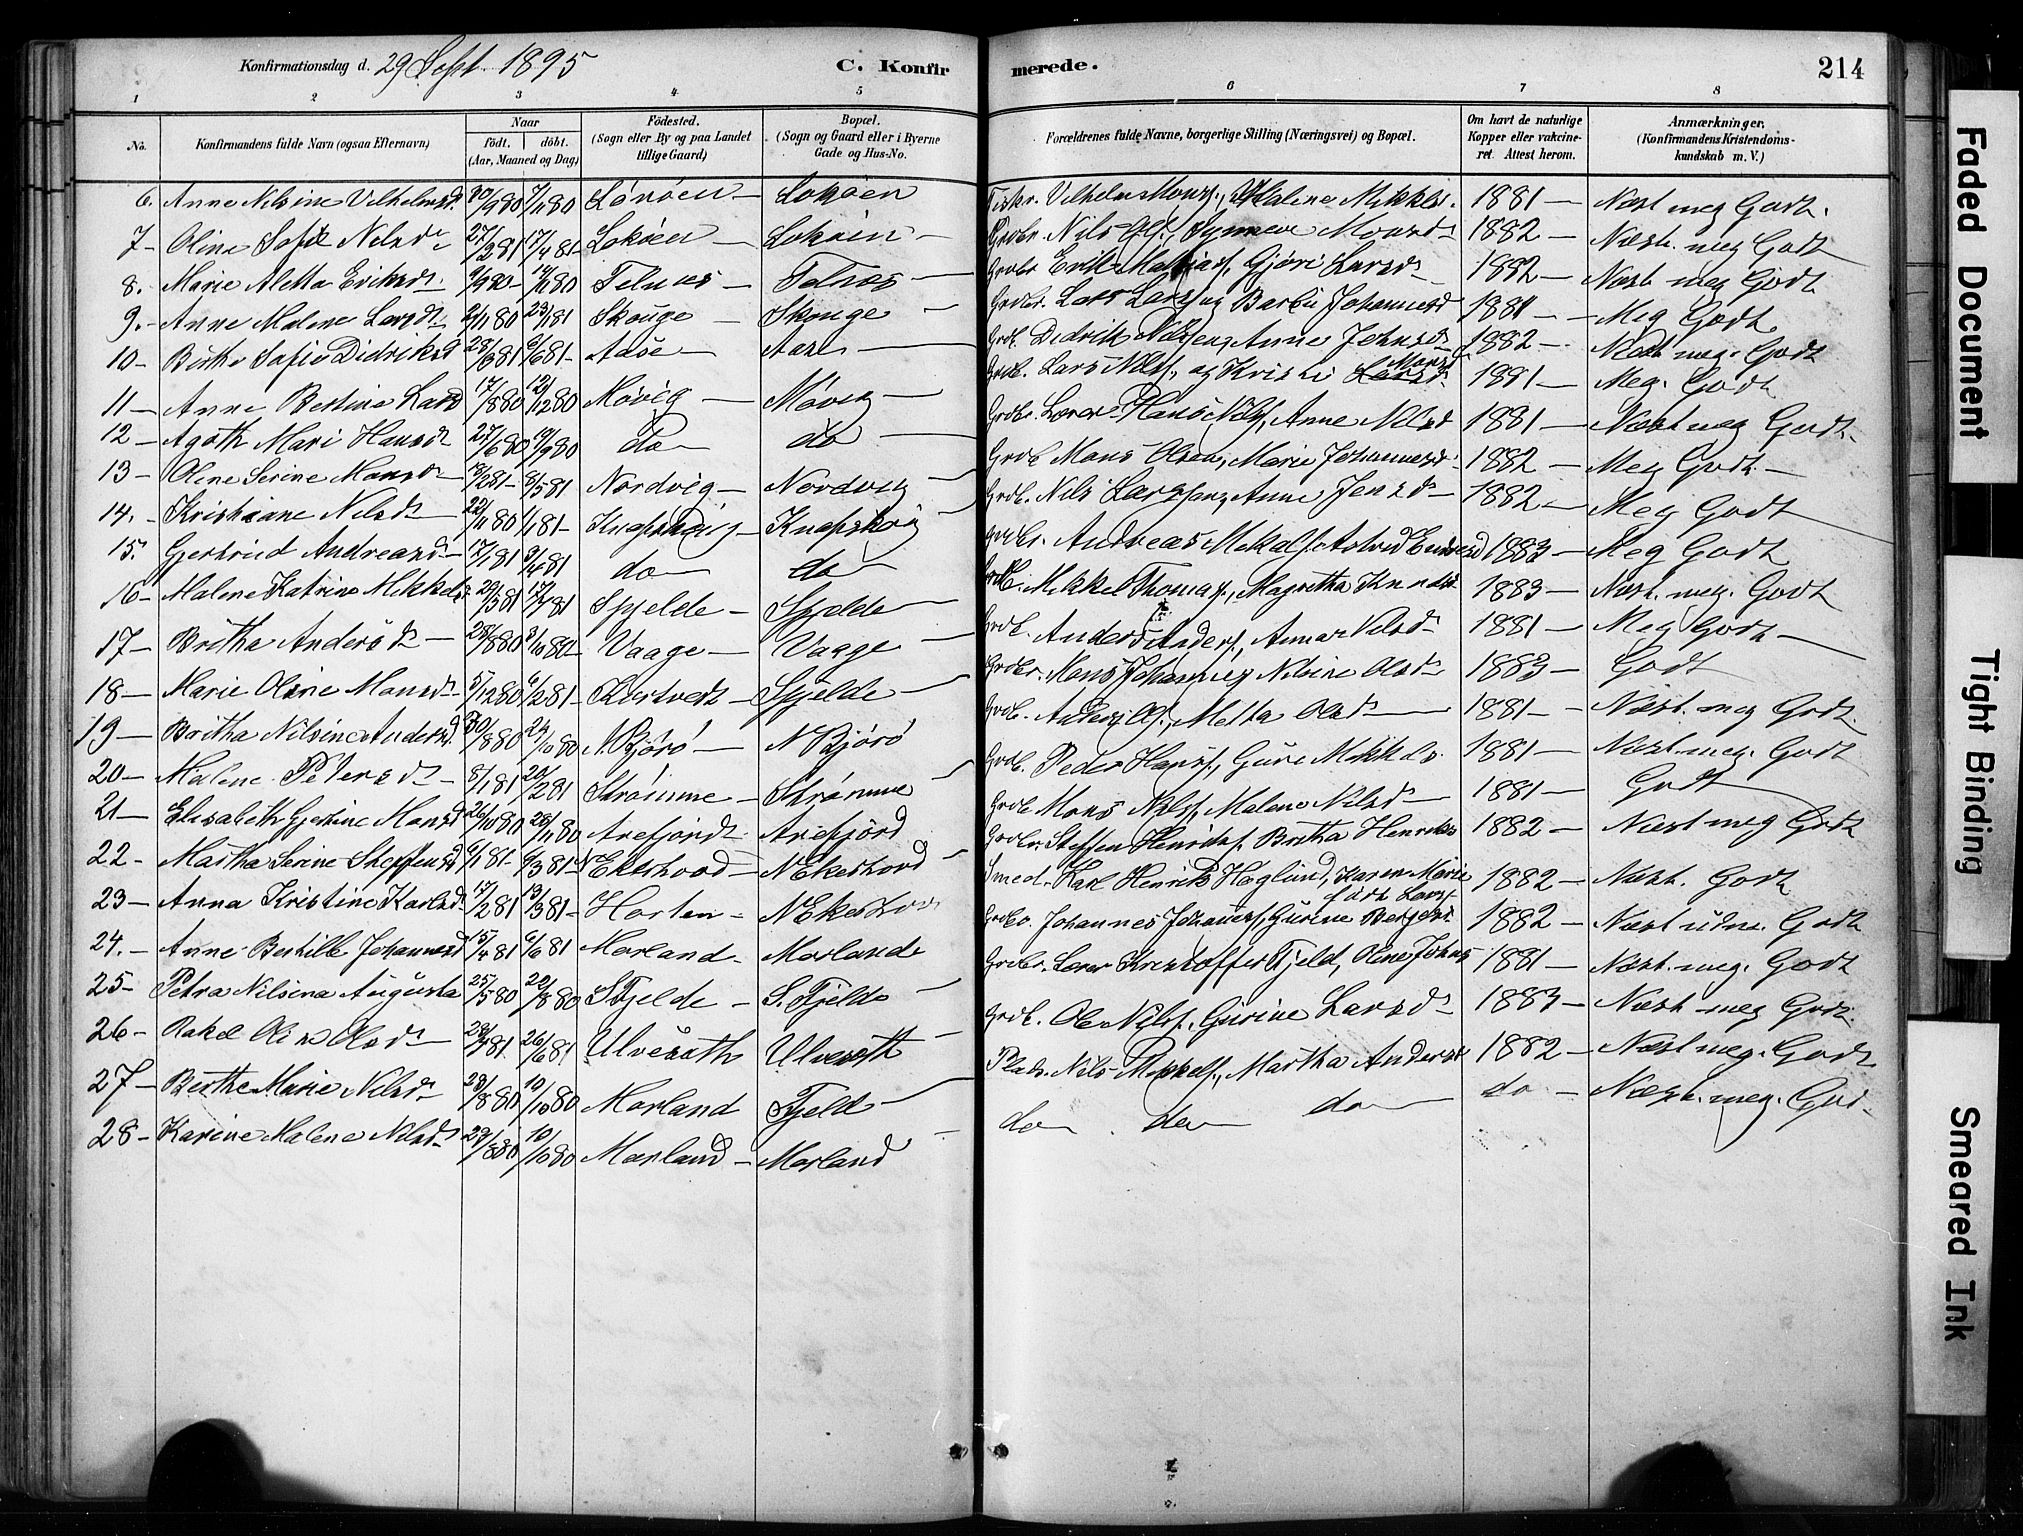 Konfirmationsdag d. 29 Sept. 1895 C. Konfirmerede. 214
1 2 3 4 5 6 7 8
No. Konfirmandens fulde Navn (ogsaa Efternavn) Naar født. døbt. (Aar, Maaned og Dag) Fødested. (Sogn eller By og paa Landet tillige Gaard) Bopæl. (Sogn og Gaard eller i Byerne Gade og Hus-No. Forældrenes fulde Navne, borgerlige Stilling (Næringsvei) og Bopæl. Om havt de naturlige Kopper eller vakcineret. Attest herom. Anmærkninger. (Konfirmandens Kristendomskundskab m. V.)
6. Anne Nilsine Vilhelmsd. 7/11 80 Lokøen Fiskr. Vilhelm Monss., Malene Mikklsd. 1881 — Næst meg Godt.
7 — Oline Sofie Nilsd 27/2 81 17/4 81 — Lokøen — Lokøen — Grdbr. Nils Synneve Monsd 1882 — Næst. meg Godt
8. Marie Aletta Eriksd. Telnæs — Telnæs — Grdbr Erik Gjøri Larsd 1882 — Næst meg Godt
9. — Anne Malene Larsd 23/1 81 Skouge — Skouge — Grdbr. Lars Larss og Barbu Johannesd 1881 — Meg Godt
10 — Sofie Didriksd Grdb. Didrik Anne Johnsd 1882 — Næst meg. Godt
11 — Anne Bertine Larsd 17/8 80 12/12 80 Møvig — Møvig — Grdb. Lars Nilss., og Kristi Monsd 1881 — Meg. Godt
12 — Agoth Mari Hansd 27/6 80 19/9 80 do do — Grdbr. Lærer Hans Nilss, Anne Nilsd 1881 — Næst meg Godt.
13 — Oline Serine Monsd 8/5 81 Nordvig — Nordvig — Grdb Mons Olsen, Marie Johannesd 1882 — Meg Godt —
14. — Kristiane Nilsd 22/11 80 1/1 81 — Knapskog Grdb. Nils Larss og Anne Jensd — 1882 — Meg Godt
15. Gjertrud Andreasd — 17/1 81 3/4 81 do do Grdbr. Andreas Mikals. Astrid 1883 — Meg Godt
16 — Malene Katrine Mikkelsd 17/4 81 Spjelde — Spjelde — Mikkel Thomass., Magretha Knudsd 1883 — Næst. meg. Godt
17 — Britha Andersd — 28/8 80 3/10 80 — Vaage — Vaage Grdb. Anders Anderss., Anna Nilsd 1881 — Meg Godt —
18 — Marie Oline Monsd — 5/12 80 6/2 81 — Spjelde — Grdbr. Mons Johanness Nilsine Olsd 1883 — Godt
19 — Britha Nilsine Andersd. 30/8 80 24/10 80 N. Bjørø — N Bjørø Grdb. Anders Ols., Metta Olsd — 1881 — Næst. meg Godt.
20 — Malene Petersd — 8/1 81 20/2 81 Strømme — Strømme Grdb. Peder Hanss., Guri Mikkelsd 1881 — Næst. meg. Godt
21 — Elisabeth Gjertine Monsd 26/10 80 28/11 80 Arefjord. Arefjord Grdb Mons Nilss, Malene Nilsd — 1881 — Godt
22 — Martha Serine Steffensd 6/1 81 — 6/3 81 — N Ekerhovd — N Ekerhovd — Grdbr. Steffen Henriks. Britha Henriksd 1882 — Næst meg Godt
23 — Anna Kristine Karlsd 17/2 81 13/3 81 — Horten — N Ekerhov Smed. Karl Henrik Høglund, Karen Marie født Larss 1882 — Næst. Godt
24. — Anne Bertille Johannesd 15/4 81 6/6 81 Morland — Morlande Johannes Johanness, Gurine 1882 — Næst udm. Godt
25 — Petra Nilsina Augusta 25/5 80 22/8 80 S Fjelde — S. Fjelde — Grdbr. Lærer Kristoffer Fjeld, Oline Johns 1881 — Næst. meg. Godt
26 — Rakel Olsd 26/6 81 Ulveseth Ulveseth — Grdb. Ole Nilss, Gurine Larsd — 1883 — Næst meg Godt.
27 — Berthe Marie Nilsd 10/10 80 Morland Fjeld — Plads. Nils Mikkels., Martha Andersd 1882 — Næst meg. Godt
28 — Karine Malene Nilsd 10/10 80 Morland — Morland do do do do — Næst. meg. God
Faded Document
Tight Binding
Smeared Ink